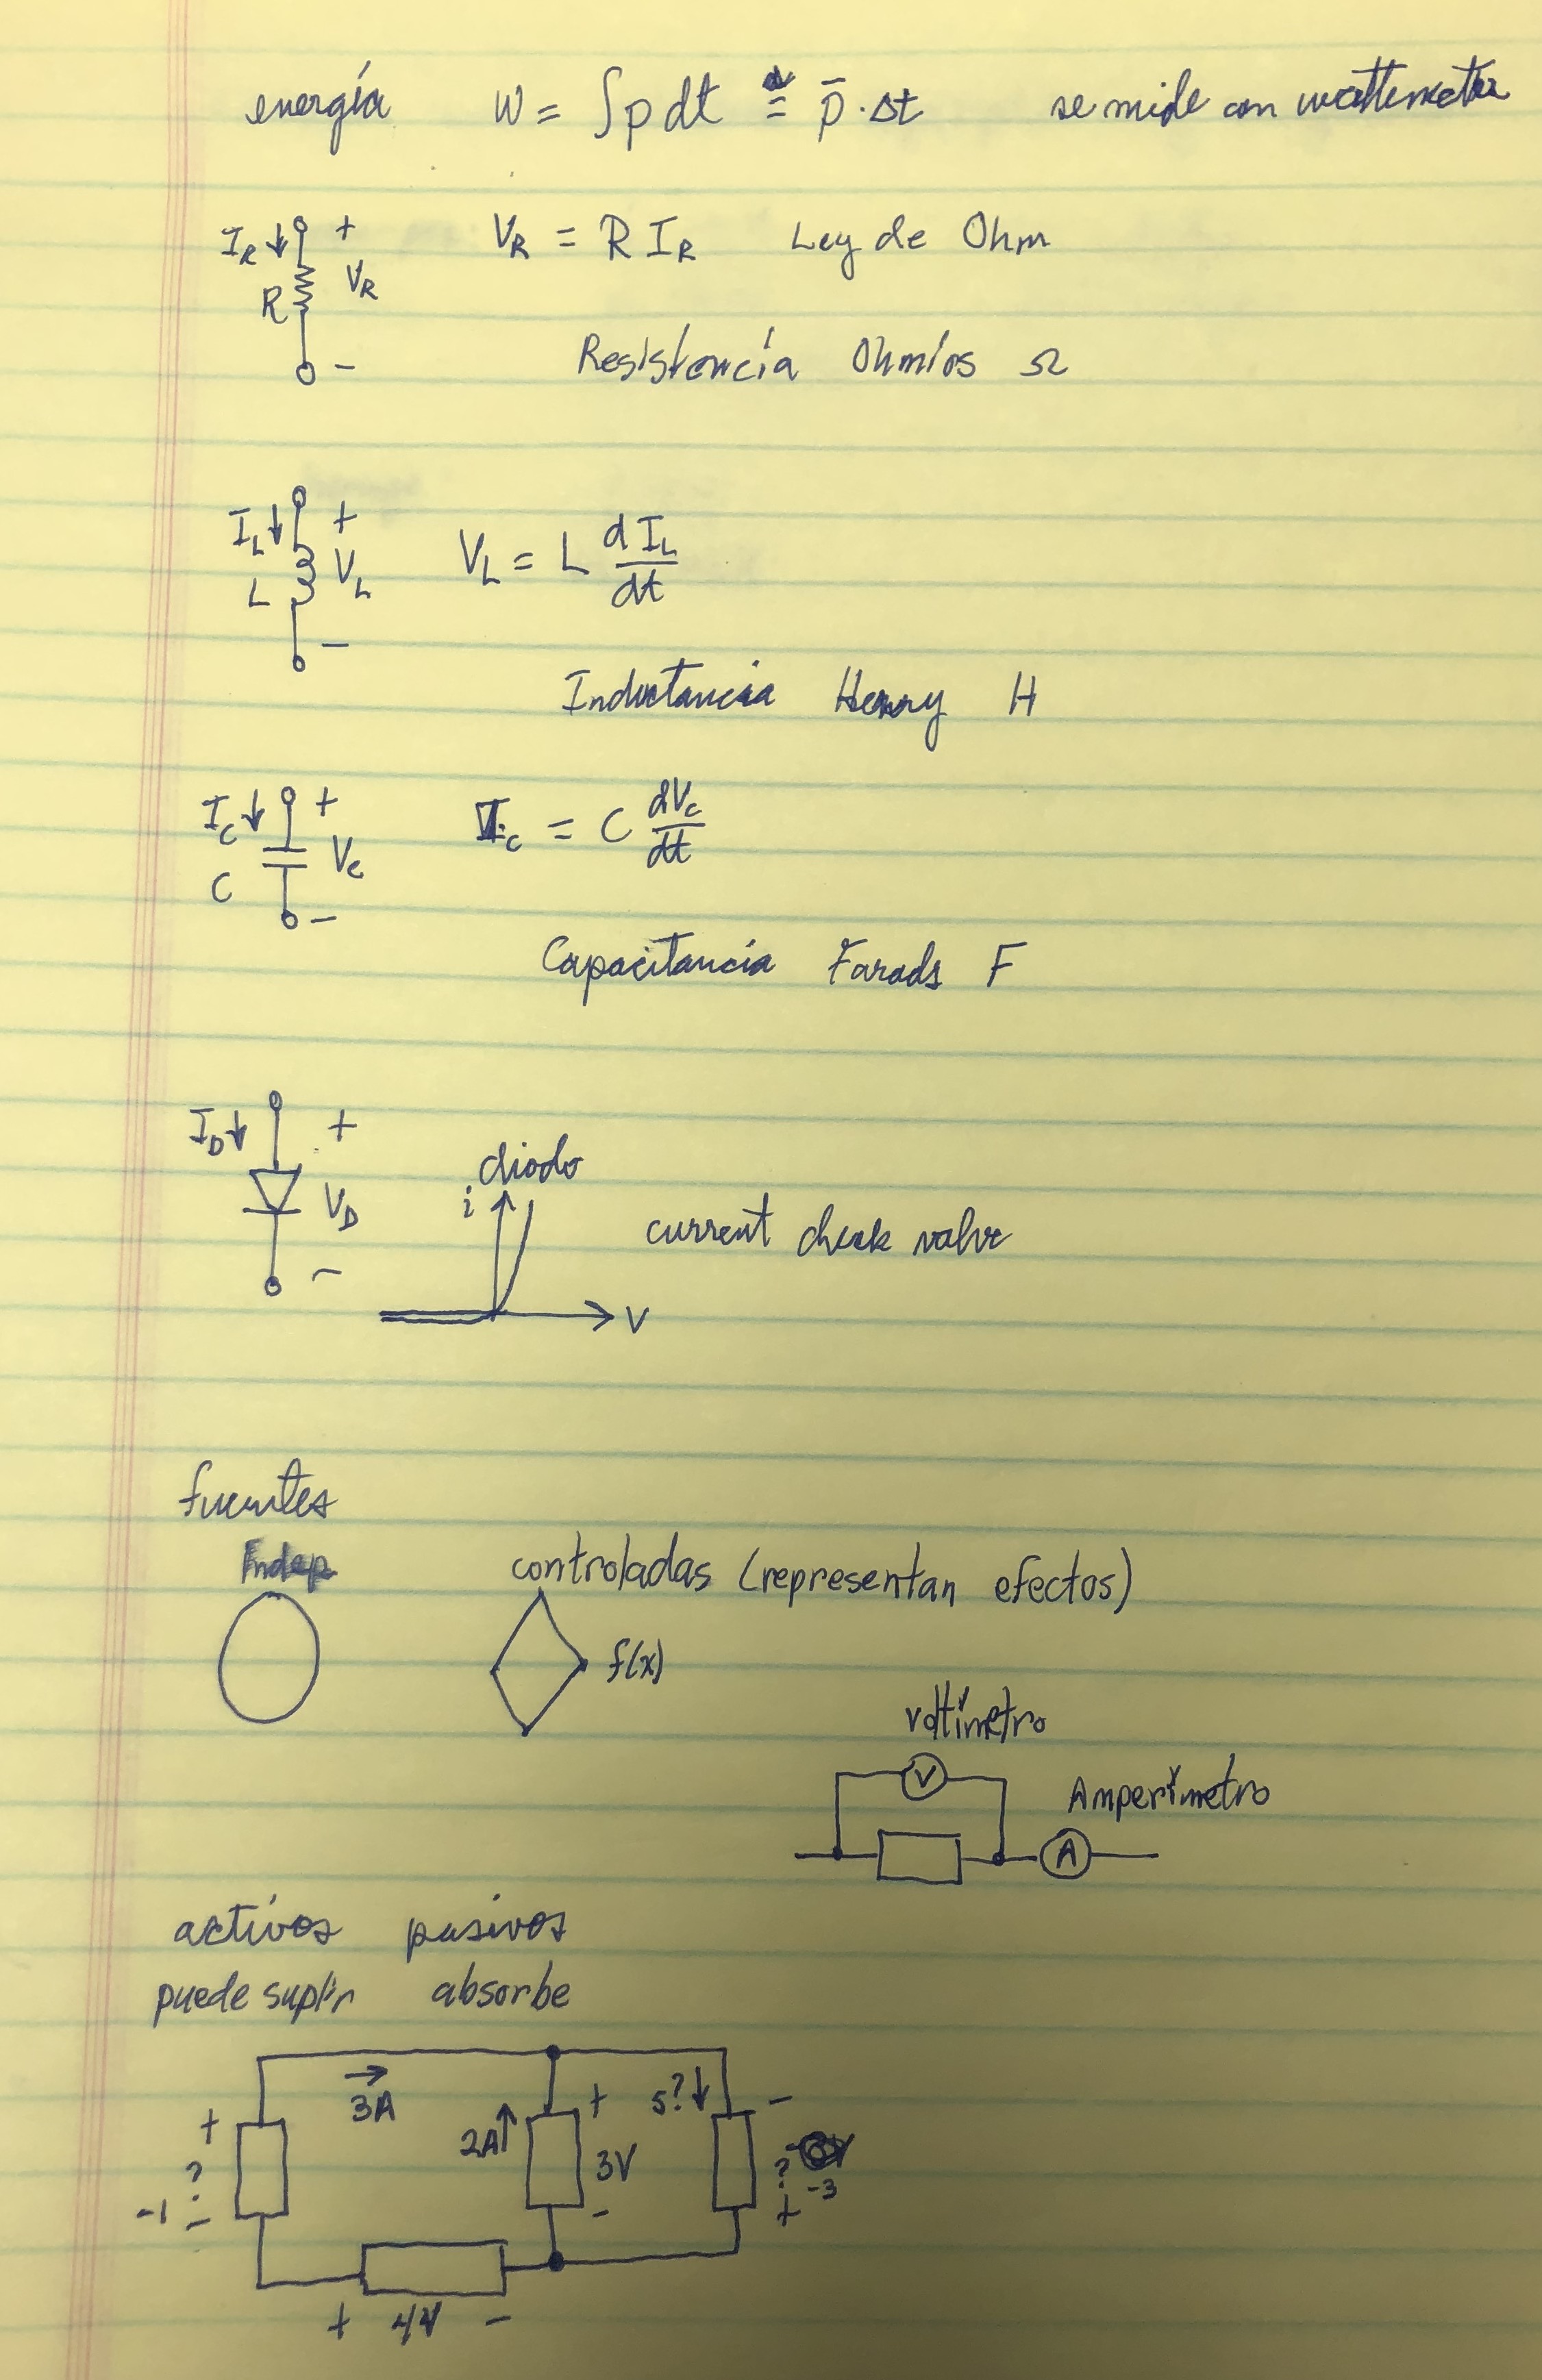 energía W = ∫ p dt ≅ p̄ · Δt se mide con
I_R ↓ + V_R = R I_R Ley de Ohm
R V_R
− Resistencia Ohmios Ω
I_L ↓ + V_L = L dI_L/dt
L V_L
−
Inductancia Henry H
I_C ↓ + I_C = C dV_C/dt
C V_C
−
Capacitancia Farads F
I_D ↓ + diodo
V_D i current check valve
− V
fuentes
Indep controladas (representan efectos)
f(x)
voltímetro
V
Amperímetro
A
activos pasivos
puede suplir absorbe
→ 3A
+ 2A ↑ + 5? ↓ −
? 3V ?
-1 − − -3 +
+ 4V −